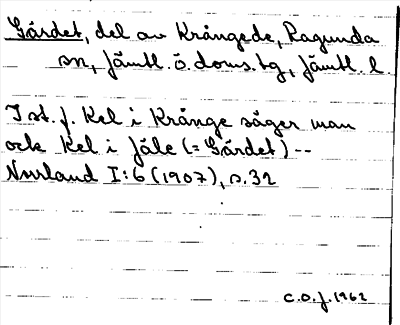 Gärdet, del av Krångede, Ragunda
sn, Jämtl. ö. doms.tg, Jämtl. l.
I st. f. Kel i Krånge säger man
ock Kel i Jäle (= Gärdet) --
Nurland I:6 (1907), s. 32
C.O.J. 1962